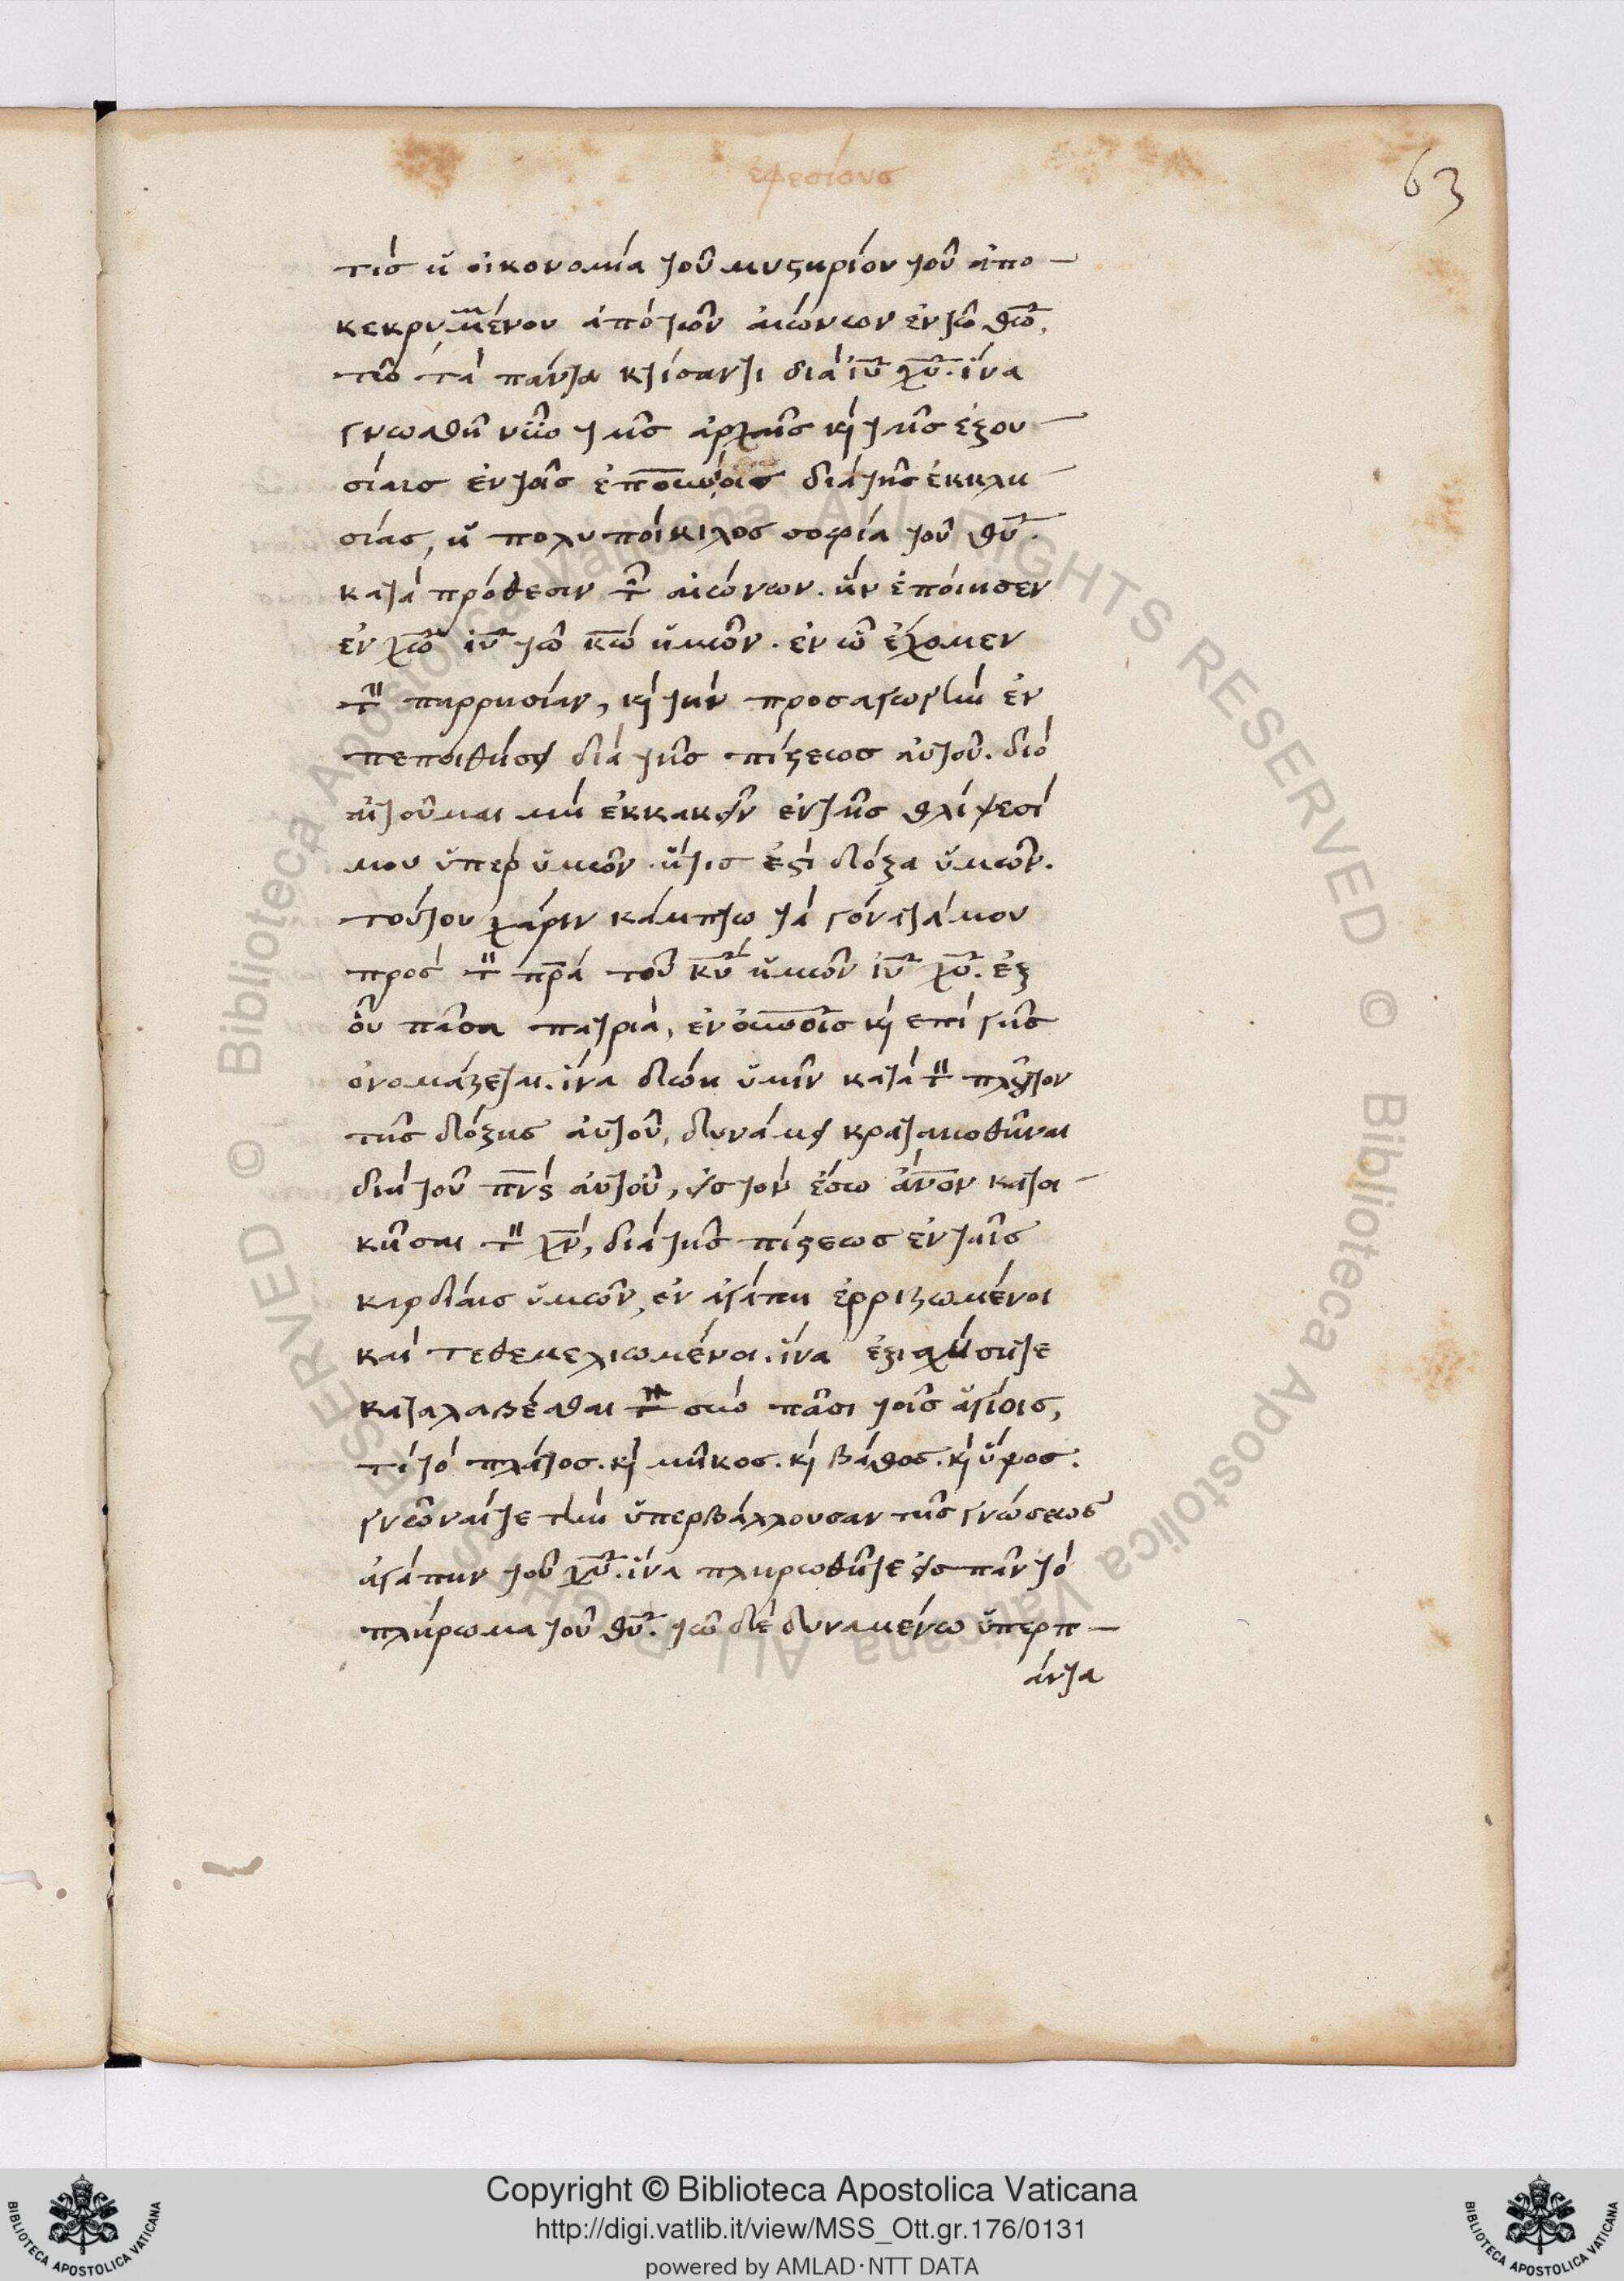 ἐφεσίους
63
τίς ἡ οἰκονομία τοῦ μυστηρίου τοῦ ἀπο-
κεκρυμμένου ἀπὸ τῶν αἰώνων ἐν τῶ θ̅ω̅,
τῶ τὰ πάντα κτίσαντι διὰ ι̅υ̅ χ̅υ̅. ἵνα
γνωσθῆ νῦν ταῖς ἀρχαῖς καὶ ταῖς ἐξου-
σίαις ἐν τοῖς διὰ τῆς ἐκκλη-
σίας, ἡ πολυποίκιλος σοφία τοῦ θ̅υ̅.
κατὰ πρόθεσιν τῶν αἰώνων. ἣν ἐποίησεν
ἐν χ̅ω̅ ι̅υ̅ τῶ κ̅ω̅ ἡμῶν. ἐν ὧ ἔχομεν
τὴν παρρησίαν, καὶ τὴν προσαγωγὴν ἐν
πεποιθήσει διὰ τῆς πίστεως αὐτοῦ. διὸ
αἰτοῦμαι μὴ ἐκκακεῖν ἐν ταῖς θλίψεσί
μου ὑπὲρ ὑμῶν. ἥτις ἐστὶ δόξα ὑμῶν.
τούτου χάριν κάμπτω τὰ γόνατά μου
πρὸς τὸν π̅ρ̅α̅ τοῦ κ̅υ̅ ἡμῶν ι̅υ̅ χ̅υ̅. ἐξ
οὗ πᾶσα πατριὰ, ἐν ο̅υ̅ν̅οῖς καὶ ἐπὶ γῆς
ὀνομάζεται. ἵνα δώη ὑμῖν κατὰ τὸν πλοῦτον
τῆς δόξης αὐτοῦ, δυνάμει κραταιωθῆναι
διὰ τοῦ π̅ν̅ς̅ αὐτοῦ, εἰς τὸν ἔσω ἄ̅ν̅ο̅ν κατοι-
κῆσαι τὸν χ̅ν̅, διὰ τῆς πίστεως ἐν ταῖς
καρδίαις ὑμῶν, ἐν ἀγάπη ἐρριζωμένοι
καὶ τεθεμελιωμένοι. ἵνα ἐξισχύσητε
καταλαβέσθαι σὺν πᾶσι τοῖς ἁγίοις,
τί τὸ πλάτος. καὶ μῆκος. καὶ βάθος. καὶ ὕψος.
γνῶναί τε τὴν ὑπερβάλλουσαν τῆς γνώσεως
ἀγάπην τοῦ χ̅υ̅. ἵνα πληρωθῆτε εἰς πᾶν τὸ
πλήρωμα τοῦ θ̅υ̅. τῶ δὲ δυναμένω ὑπὲρ π-
άντα
Copyright © Biblioteca Apostolica Vaticana
http://digi.vatlib.it/view/MSS_Ott.gr.176/0131
powered by AMLAD·NTT DATA